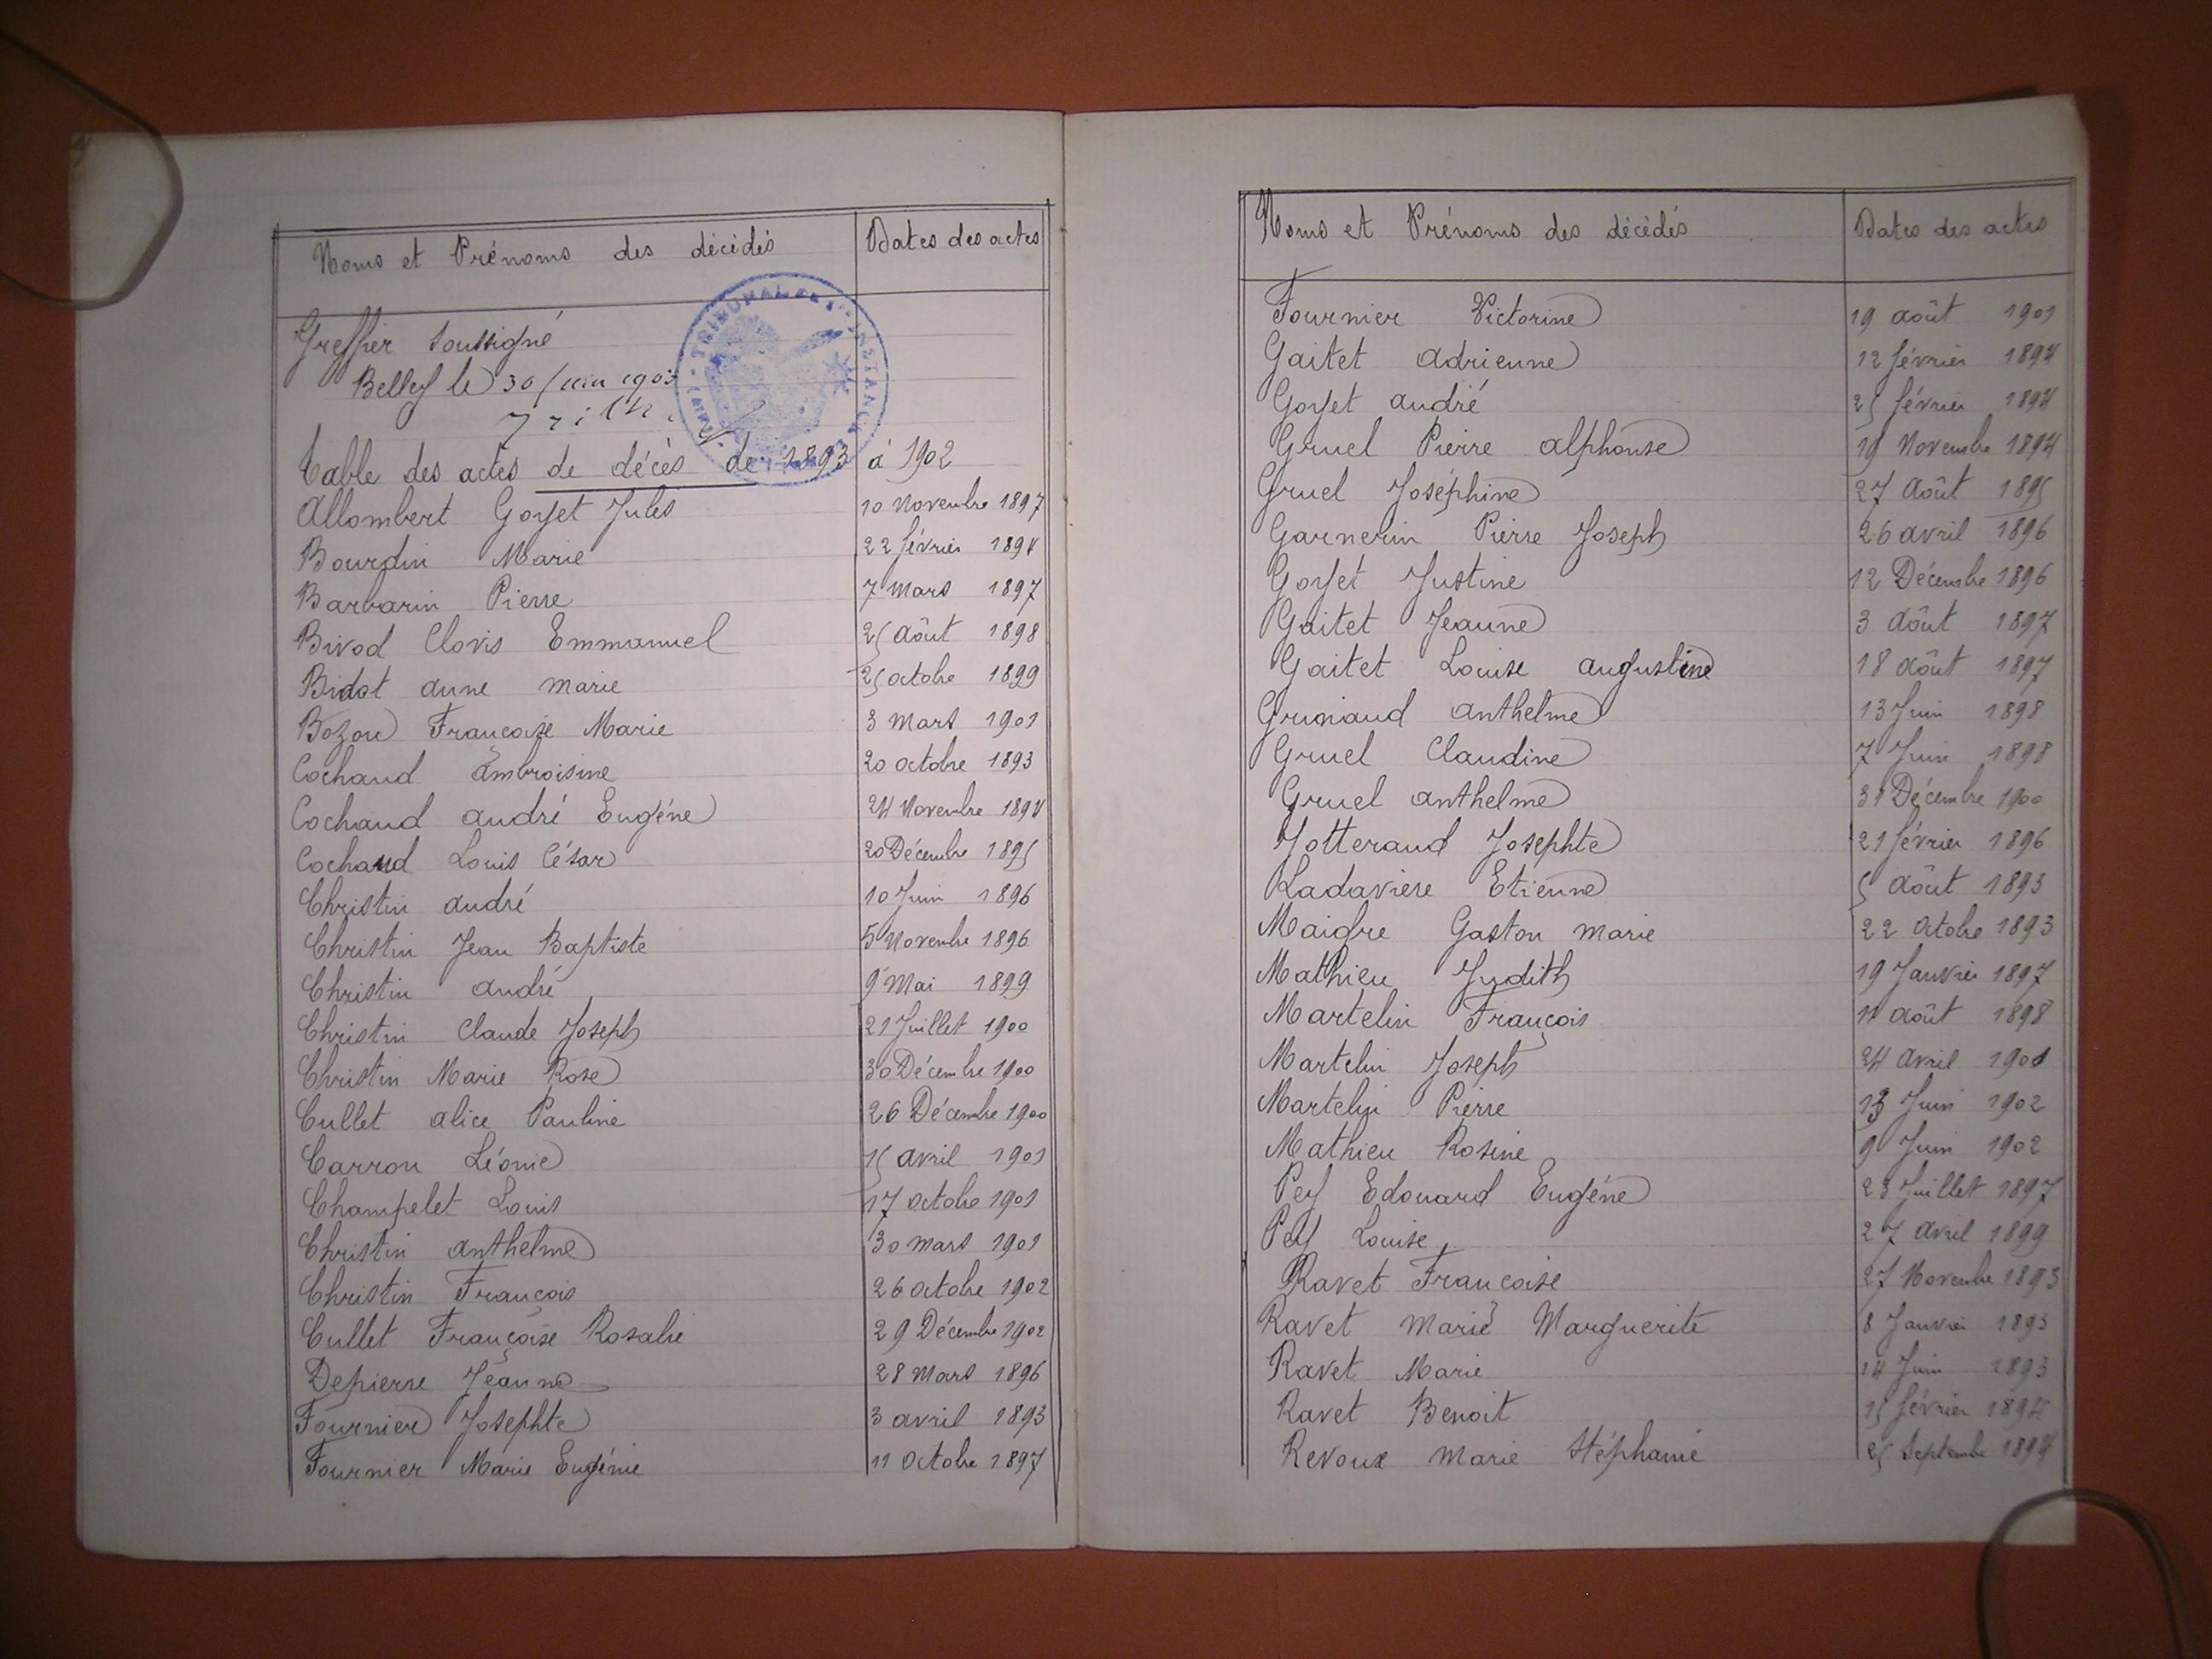 Noms et Prénoms des décédés Dates des actes
Greffier soussigné
Belley le 30 juin 1903
TRIBUNAL INSTANCE (AIN)
Table des actes de décès de 1893 à 1902
Allombert Goyet Jules 10 Novembre 1897
Bourdin Marie 22 février 1894
Barbarin Pierre 7 Mars 1897
Bivod Clovis Emmanuel 25 Août 1898
Bidat anne marie 25 octobre 1899
Bozon Françoise Marie 3 Mars 1901
Cochaud Ambroisine 20 octobre 1893
Cochaud andré Eugéne 24 Novembre 1894
Cochaud Louis César 20 Décembre 1895
Christin andré 10 Juin 1896
Christin Jean Baptiste 5 Novembre 1896
Christin andré 9 Mai 1899
Christin Claude Joseph 21 Juillet 1900
Christin Marie Rose 30 Décembre 1900
Cullet alice Pauline 26 Décembre 1900
Carron Léonie 15 avril 1901
Champelet Louis 17 octobre 1901
Christin anthelme 30 mars 1901
Christin François 26 octobre 1902
Cullet Françoise Rosalie 29 Décembre 1902
Depierre Jeanne 28 Mars 1896
Fournier Josephte 3 avril 1893
Fournier Marie Eugénie 11 Octobre 1897
Noms et Prénoms des décédés Dates des actes
Fournier Victorine 19 août 1901
Gaitet Adrienne 12 février 1894
Goyet andré 25 février 1894
Gruel Pierre alphonse 19 Novembre 1894
Gruel Joséphine 27 Août 1895
Garnerin Pierre Joseph 26 avril 1896
Goyet Justine 12 Décembre 1896
Gaitet Jeanne 3 Août 1897
Gaitet Louise augustine 18 août 1897
Grinaud anthelme 13 Juin 1898
Gruel Claudine 7 Juin 1898
Gruel anthelme 31 Décembre 1900
Jotterand Josephte 21 février 1896
Ladaviere Etienne 5 Août 1893
Maigre Gaston marie 22 octobre 1893
Mathieu Judith 19 Janvier 1897
Martelin François 11 août 1898
Martelin Joseph 24 avril 1901
Martelin Pierre 13 Juin 1902
Mathieu Rosine 9 Juin 1902
Pey Edouard Eugéne 23 Juillet 1897
Pey Louise 27 avril 1899
Ravet Françoise 27 Novembre 1893
Ravet Marie Marguerite 8 Janvier 1893
Ravet Marie 14 Juin 1893
Ravet Benoit 15 février 1894
Revoux Marie Stéphanie 25 Septembre 1894